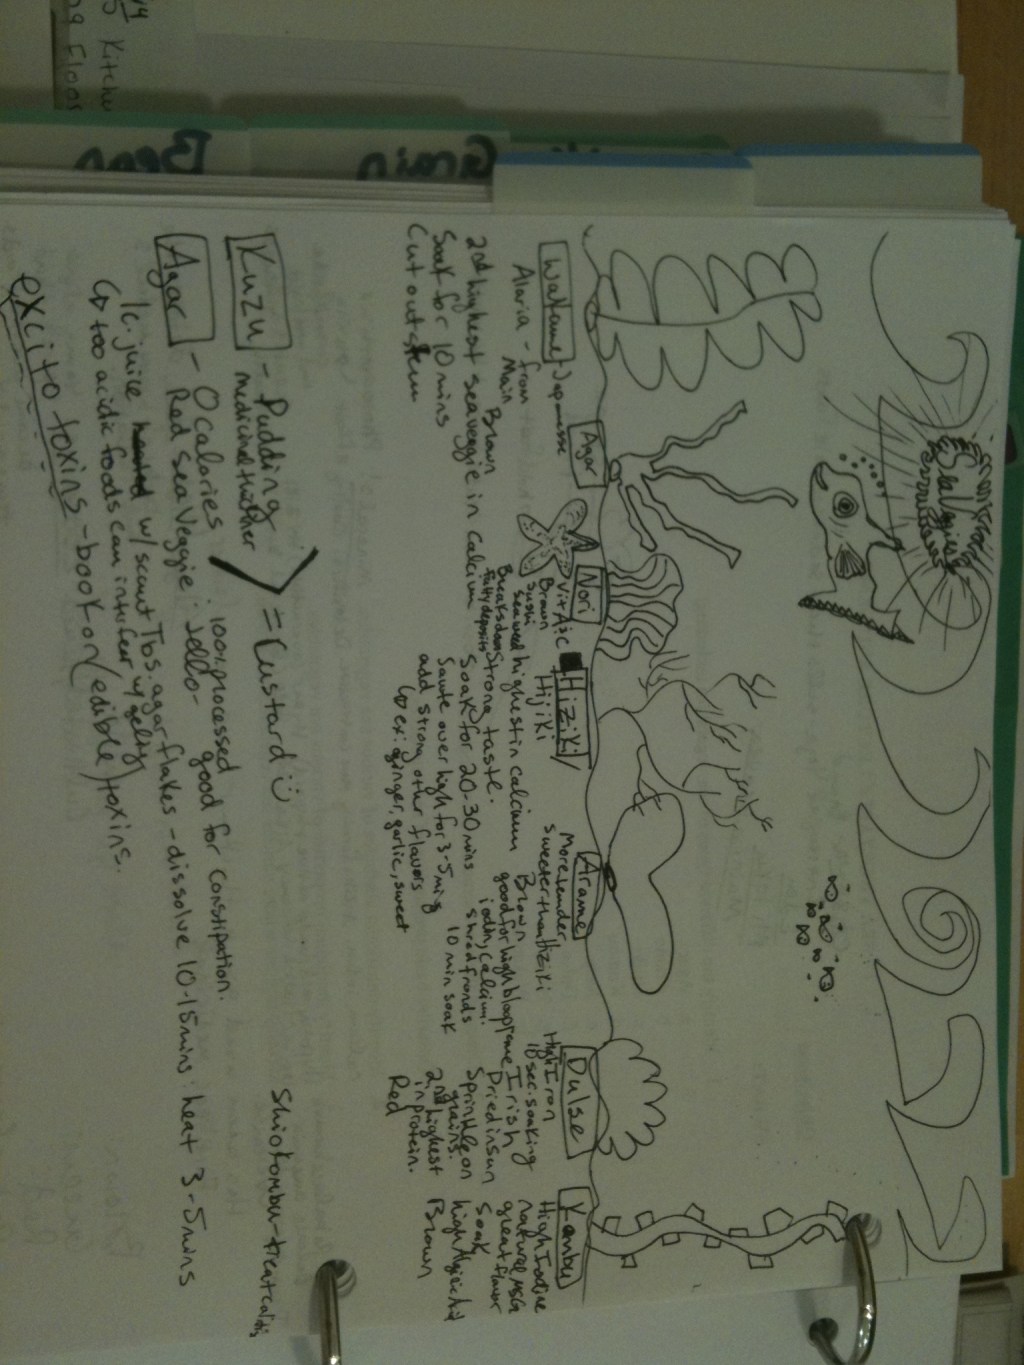 Sea Veggies
Wakame
- Japanesse
Alaria - from
Main
Brown
2nd highest sea veggie in calcium
Soak for 10 mins
Cut out stem
Agar
Nori
Vit A & C
Brown
Sushi
seaweed
Breaks down
fatty deposits
Hiziki
Hijiki
highest in calcium
Strong taste.
Soak for 20-30 mins
Saute over high for 3-5 mins
add strong other flavors
ex: ginger, garlic, sweet
Arame
More tender
sweeter than Hiziki
Brown
good for high
iodin, calcium.
shred fronds
10 min soak
Dulse
High Iron
18 sec. soaking
Irish
Dried in sun
Sprinkle on
grains.
2nd highest
in protein.
Red
Kombu
High Iodine
natural MSG
great flavor
Soak
high
Brown
Kuzu - Pudding
medicinal thickner
= Custard :)
Agar - 0 calories : 100% processed good for constipation.
- Red sea Veggie : Jello
1 c. juice w/ scant Tbs. agar flakes - dissolve 10-15 mins : heat 3-5 mins
too acidic foods can interfear w/ gelly
excito toxins - book on (edible) toxins.
Grain
Bean
5 Kitche